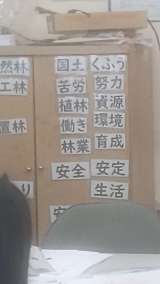 然林
工林
置林
り
国土
苦労
植林
働き
林業
安全
安
くふう
努力
資源
環境
育成
安定
生活